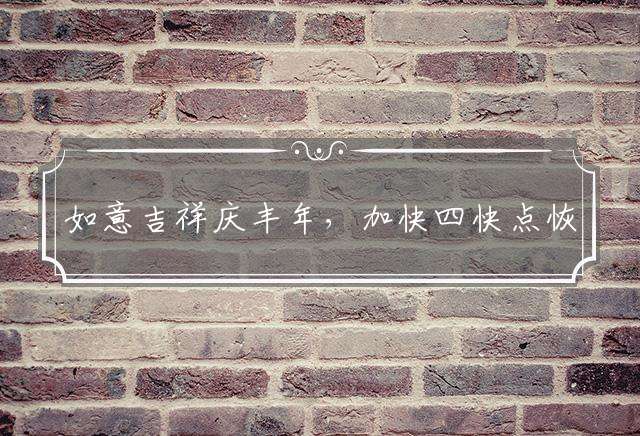 如意吉祥庆丰年，加快四快点恢